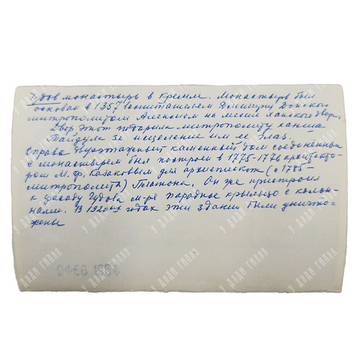 Чудов монастырь в Кремле. Монастырь был
основан в 1357 воспитателем Дмитрия Донского
митрополитом Алексеем на месте ханского двора.
Двор этот подарила митрополиту ханша
Тайдула за исцеление им ее глаз.
Справа двухэтажный каменный дом соединенный
с монастырем был построен в 1775-1776 архитекто-
ром М.Ф. Казаковым для архиепископа (с 1775-
митрополита) Платона. Он же пристроил
к фасаду Чудова м-ря парадное крыльцо с колон-
нами. В 1920х годах эти здания были уничто-
жены